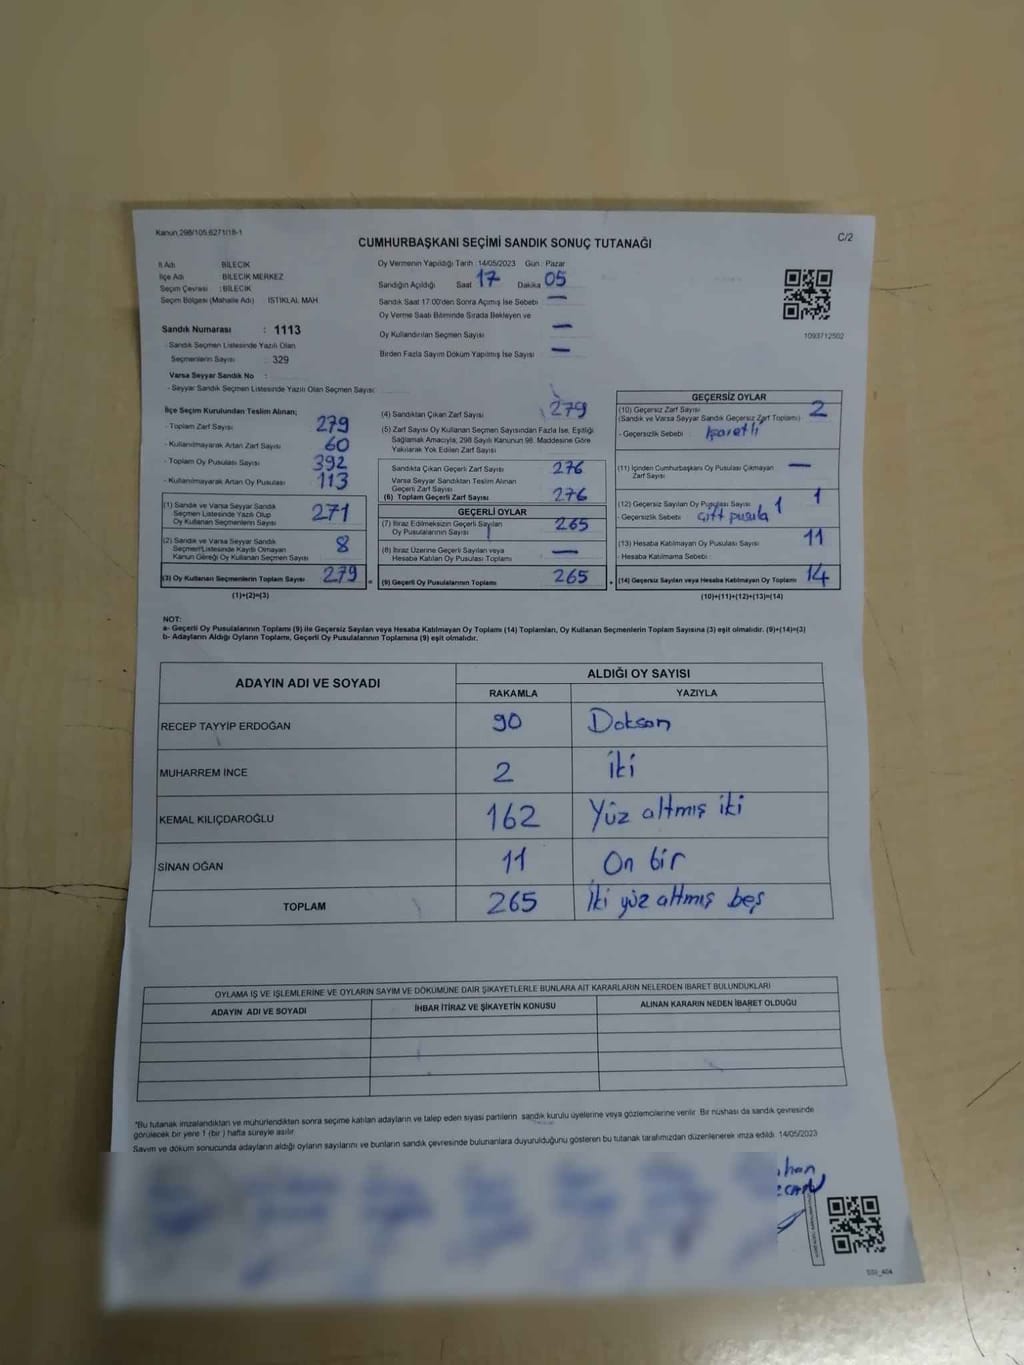 Kanun,298/105,6271/18-1
CUMHURBAŞKANI SEÇİMİ SANDIK SONUÇ TUTANAĞI
C/2
İl Adı BİLECİK
İlçe Adı BİLECİK MERKEZ
Seçim Çevresi :BİLECİK
Seçim Bölgesi (Mahalle Adı) İSTİKLAL MAH.
Oy Vermenin Yapıldığı Tarih :14/05/2023 Gün : Pazar
Sandığın Açıldığı Saat 17 Dakika 05
Sandık Saat 17:00'den Sonra Açılmış İse Sebebi —
Oy Verme Saati Bitiminde Sırada Bekleyen ve
Oy Kullandırılan Seçmen Sayısı —
Birden Fazla Sayım Döküm Yapılmış İse Sayısı —
1093712502
Sandık Numarası : 1113
- Sandık Seçmen Listesinde Yazılı Olan
Seçmenlerin Sayısı : 329
Varsa Seyyar Sandık No :
- Seyyar Sandık Seçmen Listesinde Yazılı Olan Seçmen Sayısı:
İlçe Seçim Kurulundan Teslim Alınan;
- Toplam Zarf Sayısı 279
- Kullanılmayarak Artan Zarf Sayısı 60
- Toplam Oy Pusulası Sayısı 392
- Kullanılmayarak Artan Oy Pusulası 113
(1) Sandık ve Varsa Seyyar Sandık
Seçmen Listesinde Yazılı Olup
Oy Kullanan Seçmenlerin Sayısı 271
(2) Sandık ve Varsa Seyyar Sandık
Seçmen Listesinde Kayıtlı Olmayan
Kanun Gereği Oy Kullanan Seçmen Sayısı 8
(3) Oy Kullanan Seçmenlerin Toplam Sayısı 279
(1)+(2)=(3)
(4) Sandıktan Çıkan Zarf Sayısı 279
(5) Zarf Sayısı Oy Kullanan Seçmen Sayısından Fazla İse, Eşitliği
Sağlamak Amacıyla, 298 Sayılı Kanunun 98. Maddesine Göre
Yakılarak Yok Edilen Zarf Sayısı
Sandıkta Çıkan Geçerli Zarf Sayısı 276
Varsa Seyyar Sandıktan Teslim Alınan
Geçerli Zarf Sayısı
(6) Toplam Geçerli Zarf Sayısı 276
GEÇERLİ OYLAR
(7) İtiraz Edilmeksizin Geçerli Sayılan
Oy Pusulalarının Sayısı 265
(8) İtiraz Üzerine Geçerli Sayılan veya
Hesaba Katılan Oy Pusulası Toplamı —
(9) Geçerli Oy Pusulalarının Toplamı 265
GEÇERSİZ OYLAR
(10) Geçersiz Zarf Sayısı
(Sandık ve Varsa Seyyar Sandık Geçersiz Zarf Toplamı) 2
- Geçersizlik Sebebi : İşaretli
(11) İçinden Cumhurbaşkanı Oy Pusulası Çıkmayan
Zarf Sayısı —
(12) Geçersiz Sayılan Oy Pusulası Sayısı 1 1
- Geçersizlik Sebebi : Çift pusula
(13) Hesaba Katılmayan Oy Pusulası Sayısı 11
- Hesaba Katılmama Sebebi :
(14) Geçersiz Sayılan veya Hesaba Katılmayan Oy Toplamı 14
(10)+(11)+(12)+(13)=(14)
NOT:
a- Geçerli Oy Pusulalarının Toplamı (9) ile Geçersiz Sayılan veya Hesaba Katılmayan Oy Toplamı (14) Toplamları, Oy Kullanan Seçmenlerin Toplam Sayısına (3) eşit olmalıdır. (9)+(14)=(3)
b- Adayların Aldığı Oyların Toplamı, Geçerli Oy Pusulalarının Toplamına (9) eşit olmalıdır.
ADAYIN ADI VE SOYADI ALDIĞI OY SAYISI
RAKAMLA YAZIYLA
RECEP TAYYİP ERDOĞAN 90 Doksan
MUHARREM İNCE 2 iki
KEMAL KILIÇDAROĞLU 162 Yüz altmış iki
SİNAN OĞAN 11 On bir
TOPLAM 265 İki yüz altmış beş
OYLAMA İŞ VE İŞLEMLERİNE VE OYLARIN SAYIM VE DÖKÜMÜNE DAİR ŞİKAYETLERLE BUNLARA AİT KARARLARIN NELERDEN İBARET BULUNDUKLARI
ADAYIN ADI VE SOYADI İHBAR İTİRAZ VE ŞİKAYETİN KONUSU ALINAN KARARIN NEDEN İBARET OLDUĞU
*Bu tutanak imzalandıktan ve mühürlendikten sonra seçime katılan adayların ve talep eden siyasi partilerin sandık kurulu üyelerine veya gözlemcilerine verilir. Bir nüshası da sandık çevresinde
görülecek bir yere 1 (bir) hafta süreyle asılır.
Sayım ve döküm sonucunda adayların aldığı oyların sayılarını ve bunların sandık çevresinde bulunanlara duyurulduğunu gösteren bu tutanak tarafımızdan düzenlenerek imza edildi. 14/05/2023